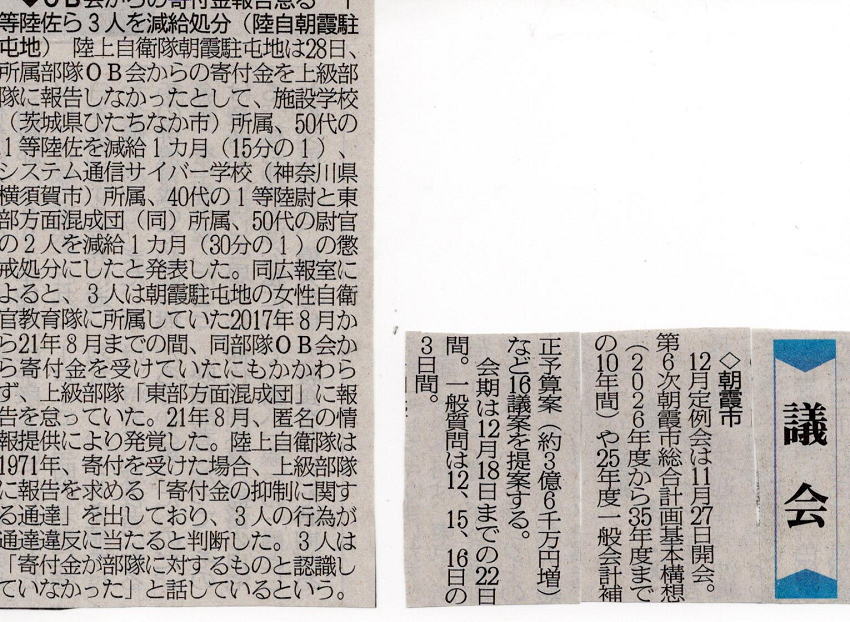 ◆ＯＢ会からの寄付金報告怠る　１
等陸佐ら３人を減給処分（陸自朝霞駐
屯地）　陸上自衛隊朝霞駐屯地は28日、
所属部隊ＯＢ会からの寄付金を上級部
隊に報告しなかったとして、施設学校
（茨城県ひたちなか市）所属、50代の
１等陸佐を減給１カ月（15分の１）、
システム通信サイバー学校（神奈川県
横須賀市）所属、40代の１等陸尉と東
部方面混成団（同）所属、50代の尉官
の２人を減給１カ月（30分の１）の懲
戒処分にしたと発表した。同広報室に
よると、３人は朝霞駐屯地の女性自衛
官教育隊に所属していた2017年８月か
ら21年８月までの間、同部隊ＯＢ会か
ら寄付金を受けていたにもかかわら
ず、上級部隊「東部方面混成団」に報
告を怠っていた。21年８月、匿名の情
報提供により発覚した。陸上自衛隊は
1971年、寄付を受けた場合、上級部隊
に報告を求める「寄付金の抑制に関す
る通達」を出しており、３人の行為が
通達違反に当たると判断した。３人は
「寄付金が部隊に対するものと認識し
ていなかった」と話しているという。
議会
◇朝霞市
12月定例会は11月27日開会。
第6次朝霞市総合計画基本構想
（２０２６年度から35年度まで
の10年間）や25年度一般会計補
正予算案（約3億6千万円増）
など16議案を提案する。
会期は12月18日までの22日
間。一般質問は12、15、16日の
3日間。